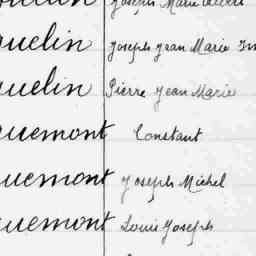 uelin Joseph Marie Albert
quelin Joseph Jean Marie
quelin Pierre Jean Marie
quemont Constant
quemont Joseph Michel
quemont Louis Joseph